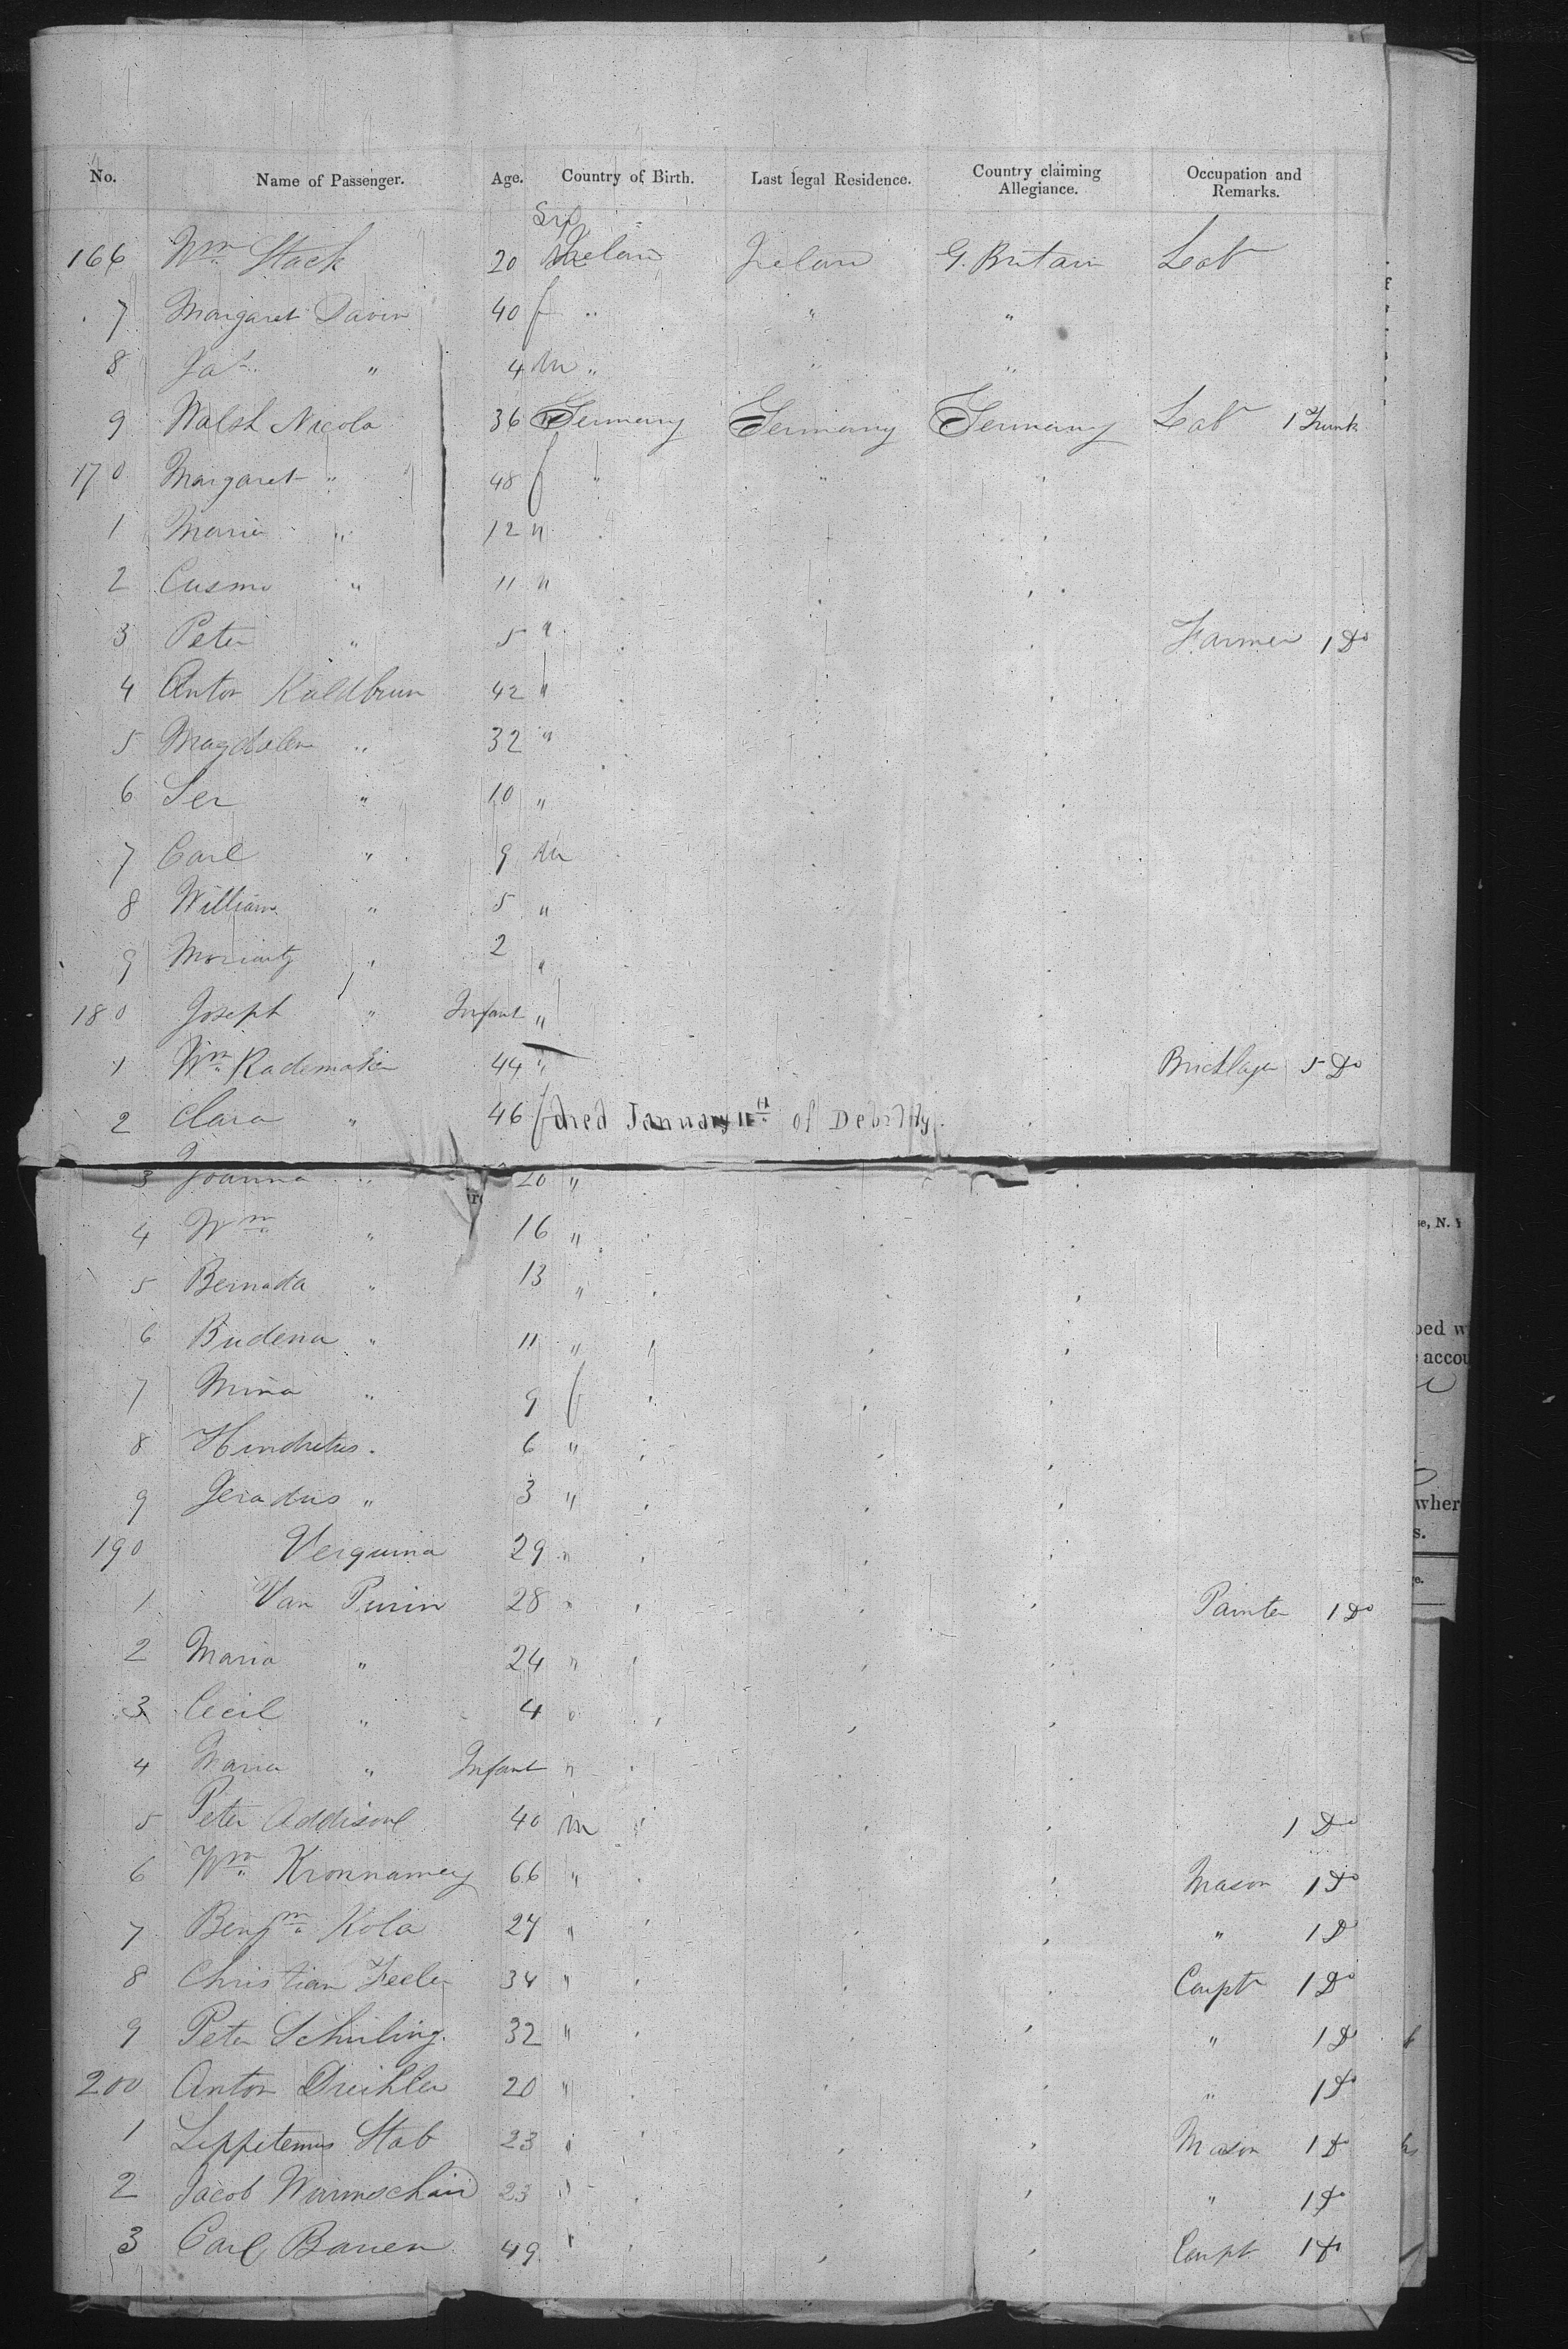 No. Name of Passenger. Age. Country of Birth. Last legal Residence. Country claiming Allegiance. Occupation and Remarks.
166 Wm Stack 20 Ireland Ireland G. Britain Lab
7 Margaret Davin 40 f " " "
8 " 4 m " " "
9 Walsh Nicola 36 Germany Germany Germany Lab 1 Trunk
170 Margaret " 48 f " " "
1 Maria " 12 "
2 Cusmo " 11 "
3 Peter " 5 " Farmer 1 Do
4 Anton Kaldbrun 42 "
5 Magdalen " 32 "
6 Ser " 10 "
7 Carl " 9 m
8 William " 5 "
9 Moriarty " 2 "
180 Joseph " Infant "
1 Wm Rademaker 44 " Bricklayer 5 Do
2 Clara " 46 f died January 11th of Debility.
3 Joanna " 20 "
4 Wm " 16 "
5 Bernada " 13 "
6 Budena " 11 "
7 Mina " 9 f
8 Hindritus " 6 "
9 Geradus " 3 "
190 Verquina 29 "
1 Van Purin 28 " Painter 1 Do
2 Maria " 24 "
3 Cecil " 4 "
4 Maria " Infant "
5 Peter Addisonl 40 m " 1 Do
6 Wm Kronnamey 66 " Mason 1 Do
7 Benjmn Kola 24 " " 1 Do
8 Christian Feeler 34 " Carptr 1 Do
9 Peter Schuling 32 " " 1 Do
200 Anton Dreihler 20 " " 1 Do
1 Lippitemus Stab 23 " Mason 1 Do
2 Jacob Warmschair 23 " " 1 Do
3 Carl Bauen 49 " Carpt 1 Do
se, N. Y
bed w
accou
wher
s.